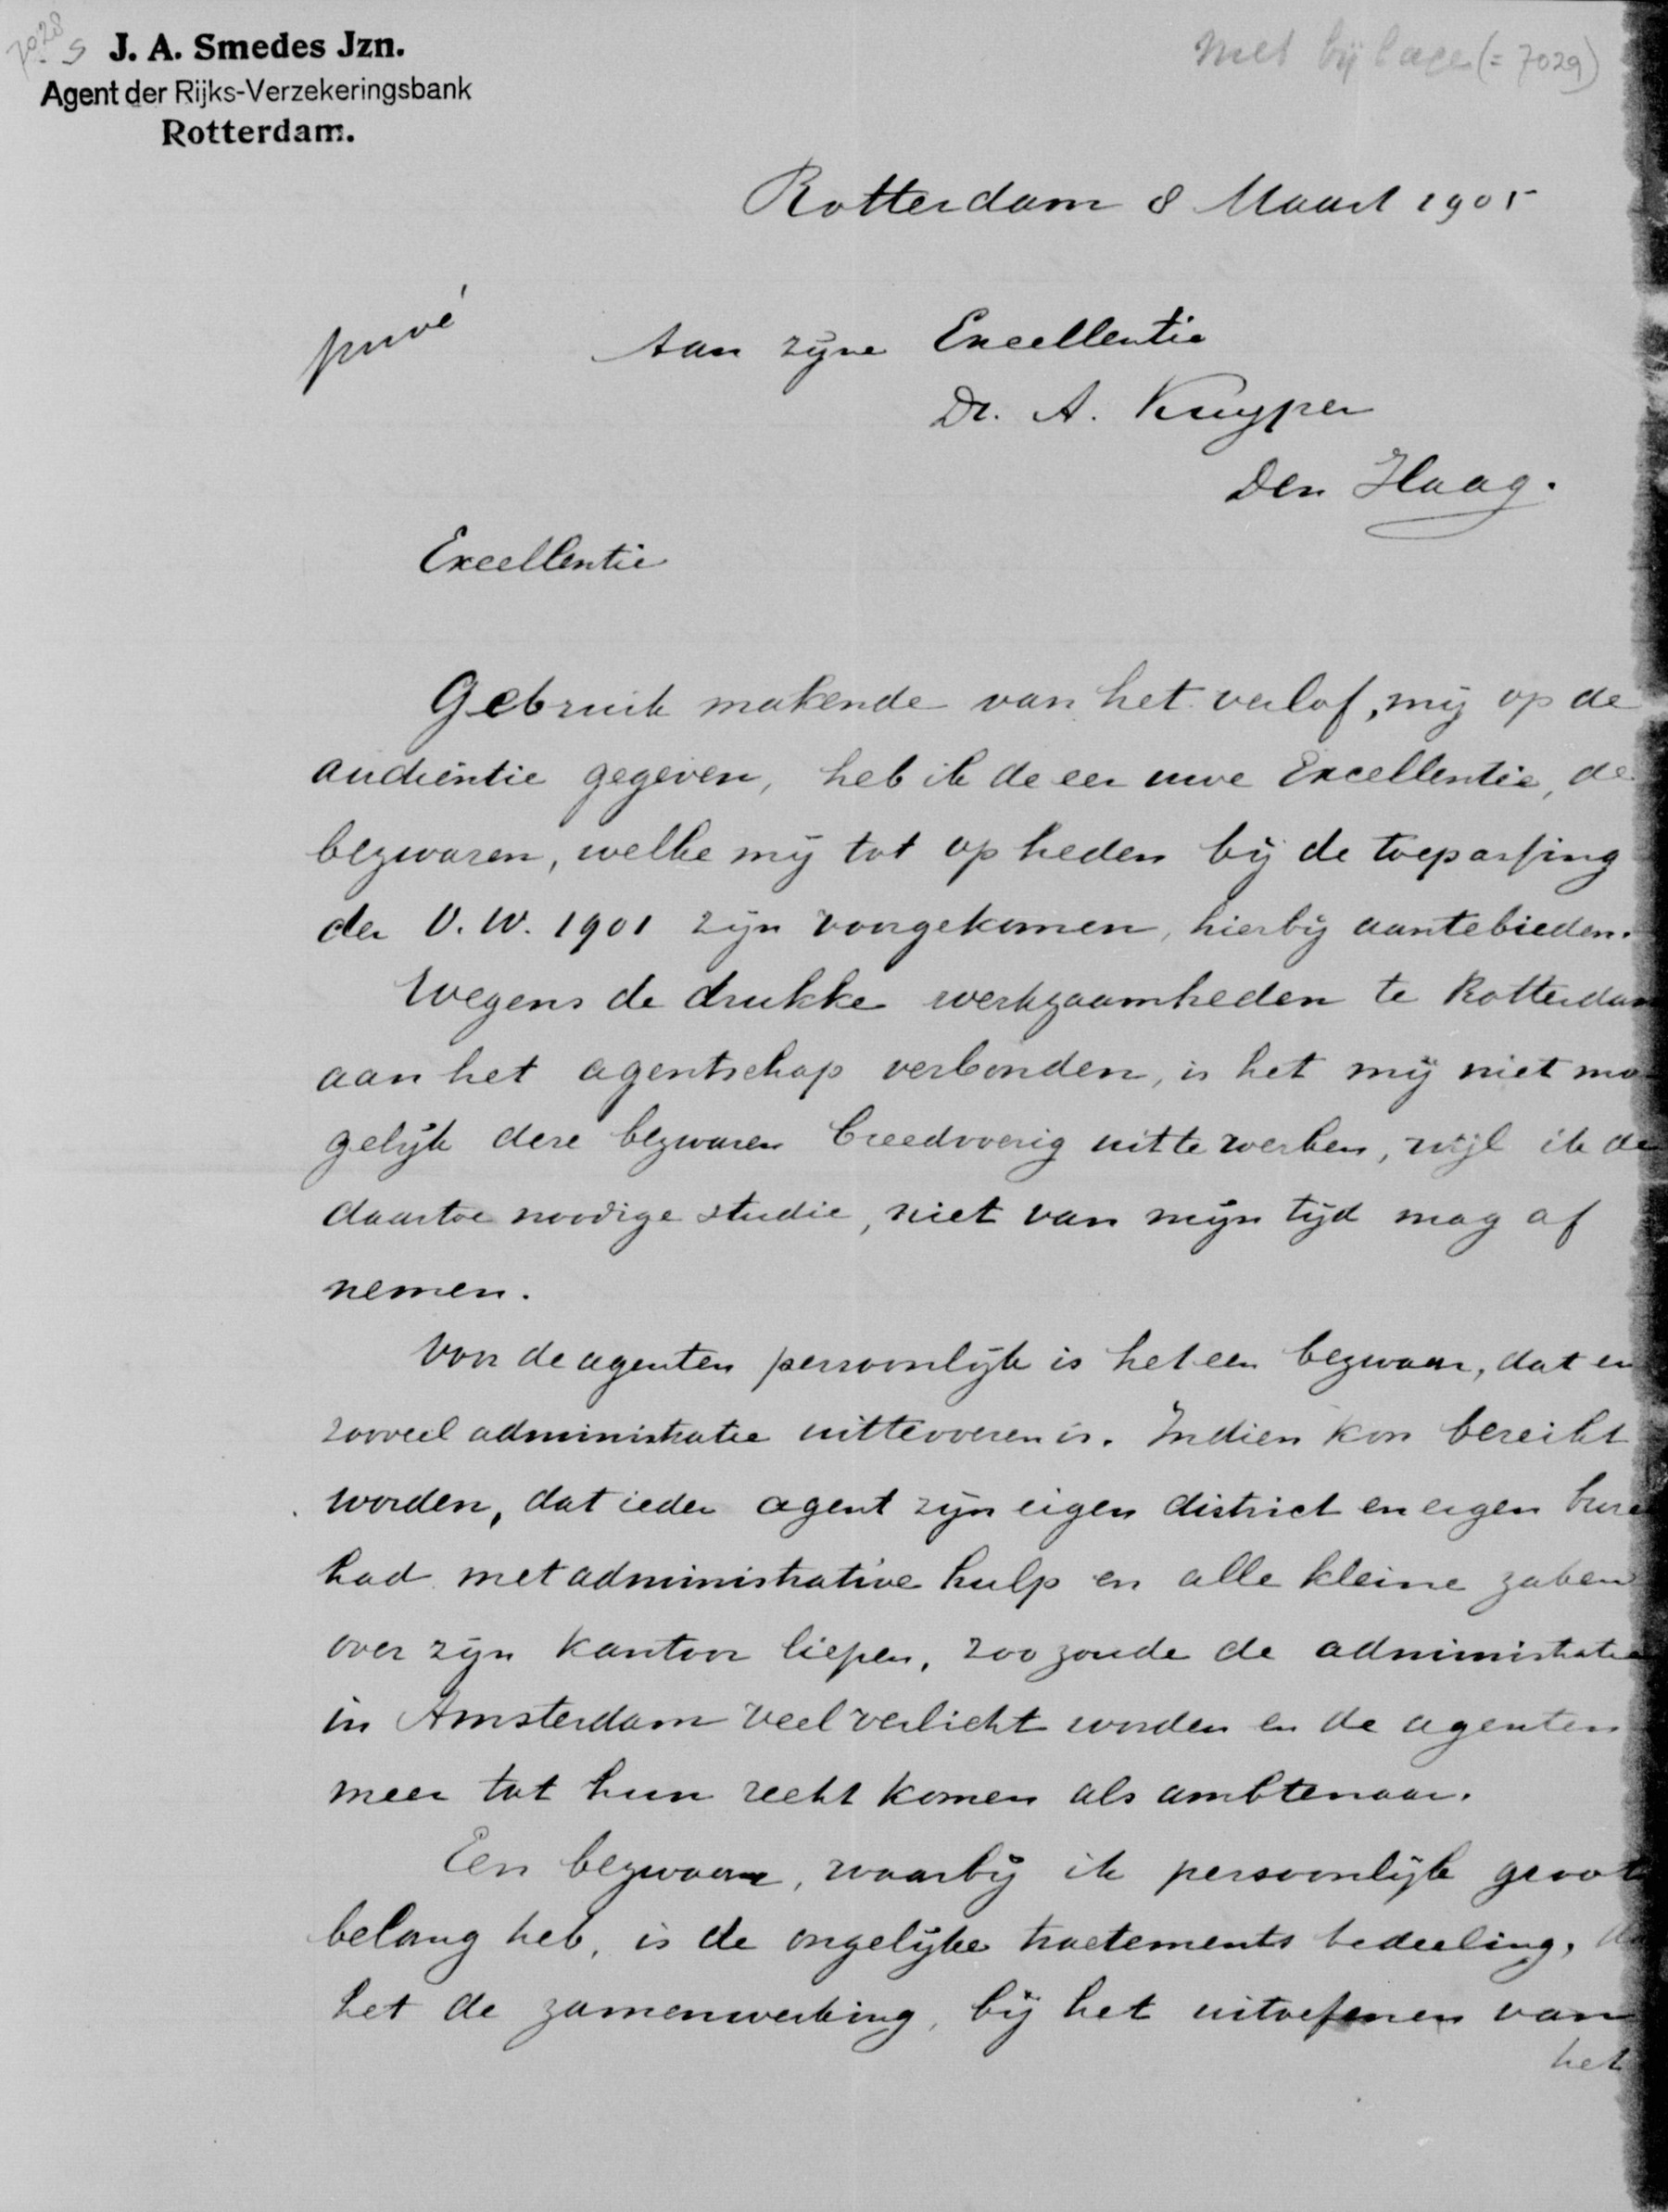 7028
S
J. A. Smedes Jzn.
Agent der Rijks-Verzekeringsbank
Rotterdam.
met bijlage (= 7029)
Rotterdam 8 Maart 1905
privé
Aan zijne Excellentie
Dr. A. Kuyper
Den Haag.
Excellentie
Gebruik makende van het verlof, mij op de
audiëntie gegeven, heb ik de eer uwe Excellentie, de
bezwaren, welke mij tot op heden bij de toepassing
der O. W. 1901 zijn voorgekomen, hierbij aantebieden.
Wegens de drukke werkzaamheden te Rotterdam
aan het agentschap verbonden, is het mij niet mo-
gelijk deze bezwaren breedvoerig uit te werken, wijl ik de
daartoe noodige studie, niet van mijn tijd mag af
nemen.
Voor de agenten persoonlijk is het een bezwaar, dat er
zooveel administratie uittevoeren is. Indien kon bereikt
worden, dat ieder agent zijn eigen district en eigen bure
had met administrative hulp en alle kleine zaken
over zijn kantoor liepen, zoo zoude de administratie
in Amsterdam veel verlicht worden en de agenten
meer tot hun recht komen als ambtenaar.
Een bezwaar, waarbij ik persoonlijk groot
belang heb, is de ongelijke tractements bedeeling,
het de zamenwerking, bij het uitoefenen van
het